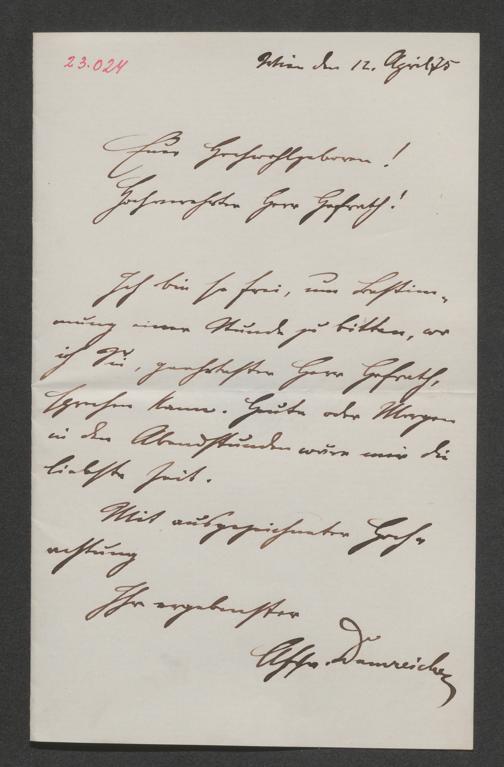 23.024
Wien den 12. April 75
Euer Hochwohlgeboren!
Hochverehrter Herr Hofrath!
Ich bin so frei, um Bestim-
mung einer Stunde zu bitten, wo
ich Sie, geehrtester Herr Hofrath,
sprechen kann. Heute oder Morgen
in den Abendstunden wäre mir die
liebste Zeit.
Mit ausgezeichneter Hoch-
achtung
Ihr ergebenster
Dumreicher